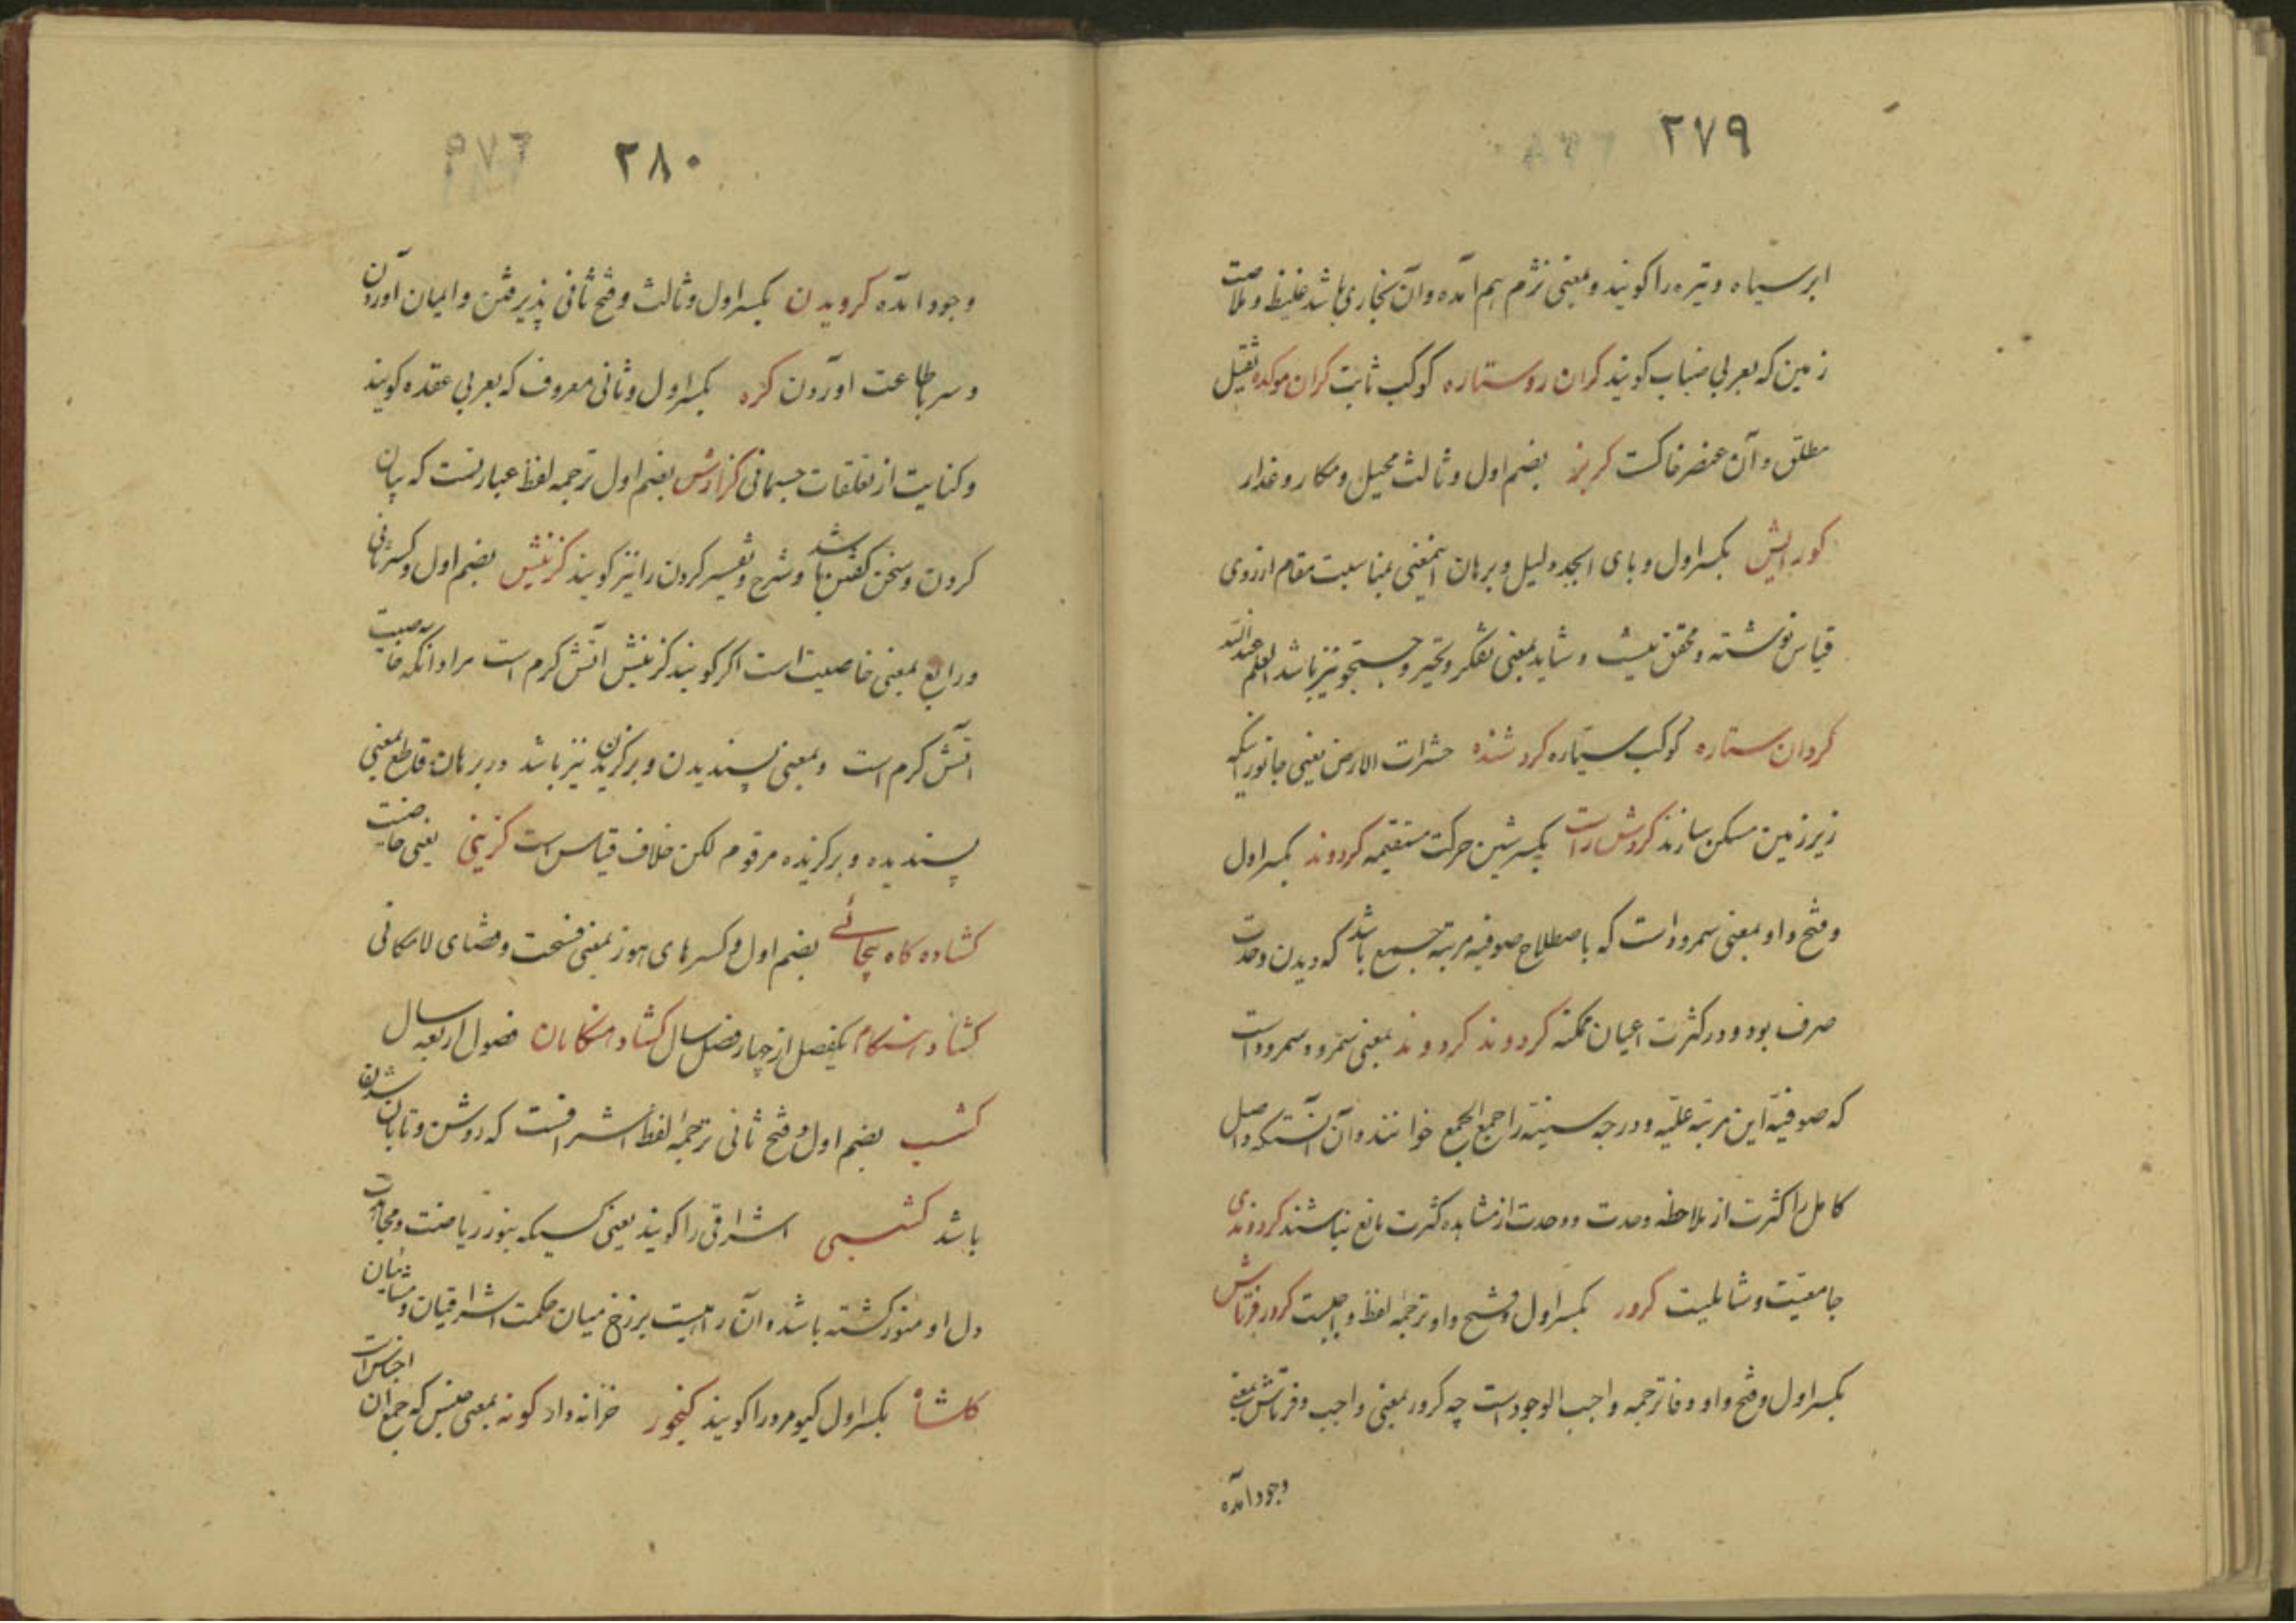 ۲۷۹
ابر سیاه و تیره را کویند و بمعنی نژم هم آمده و آن بخاری باشد غلیظ و ملاصت
زمین که بعربی ضباب کویند کران رو ستاره کوکب ثابت کران موکده ثقیل
مطلق و آن عنصر خاکست کربز بضم اول و ثالث محیل و مکار و غدار
بکسر اول و بای ابجد دلیل و برهان اینمعنی بمناسبت مقام ازروی
قیاس نوشته و محقق نیست و شاید بمعنی تفکر و تحیر و جستجو نیز باشد العلم عند الله
کردان ستاره کوکب سیاره کرد شنده حشرات الارض یعنی جانورانیکه
زیر زمین مسکن سازند کردش راست بکسر شین حرکت مستقیمه کردوند بکسر اول
و فتح واو بمعنی سمرود است که باصطلاح صوفیه مرتبه جمع باشد که دیدن وحدت
صرف بود و در کثرت اعیان ممکنه کردوند کردوند بمعنی سمرود سمرود است
که صوفیه این مرتبه علیه و درجه سنیه را جمع الجمع خوانند و آن آنستکه واصل
کامل را کثرت از ملاحظه وحدت و وحدت از مشاهده کثرت مانع نباشند کردوندی
جامعیت و شاملیت کرور بکسر اول و فتح واو ترجمه لفظ واجبست کرور فرتاش
بکسر اول و فتح واو و فا ترجمه واجب الوجود است چه کرور بمعنی واجب و فرتاش بمعنی
وجود آمده
۲۸۰
وجود آمده کرویدن بکسر اول و ثالث و فتح ثانی پذیرفتن و ایمان آوردن
و سر باطاعت آوردن کره بکسر اول و ثانی معروف که بعربی عقده کویند
و کنایت از تعلقات جسمانی کزارش بضم اول ترجمه لفظ عبارتست که بیان
کردن و سخن کفتن باشد و شرح و تفسیر کردن را نیز کویند کزینش بضم اول و کسر ثانی
و رابع بمعنی خاصیت است اکر کویند کزینش آتش کرم است مراد آنکه خاصیت
آتش کرم است و بمعنی پسندیدن و برکزیدن نیز باشد در برهان قاطع بمعنی
پسندیده و برکزیده مرقوم لکن خلاف قیاس است کزینی یعنی خاصیت
کشاده کاه بضم اول و کسر های هوز بمعنی فسحت و فضای لامکانی
کشاد هنکام یکفصل از چهار فصل سال کشاد هنکامان فصول اربعه سال
کشب بضم اول و فتح ثانی ترجمه لفظ اشراقست که روشن و تابان شدن
باشد کشسبی اشراقی را کویند یعنی کسیکه بنور ریاضت و مجاهدت
دل او منور کشته باشد و آن راهیست برزخ میان حکمت اشراقیان و مشائیان
کلشاه بکسر اول کیومرو را کویند کنجور خزانه دار کونه بمعنی جنس که جمع آن اجناس است